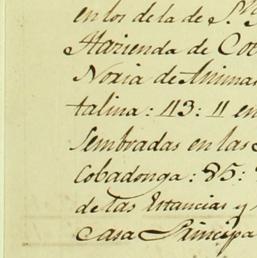 en los de la de S.
Hazienda de Cov
Noria de Animas
talina: 113: 11 en
Sembradas en las
Cobadonga: 85:
de las Estancias y
Casa Principa